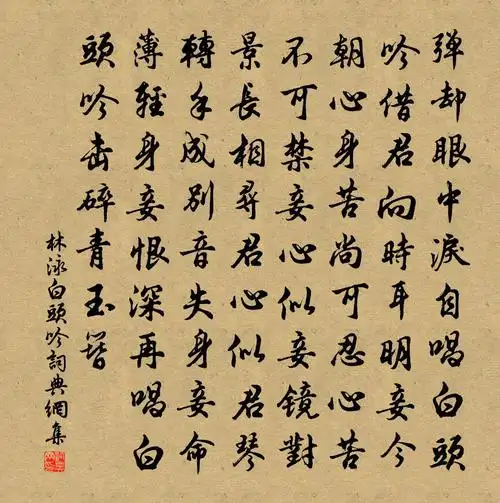 弹却眼中淚自唱白頭
吟借君向時耳明妾今
朝心身苦尚可忍心苦
不可禁妾心似妾鏡對
景長相尋君心似君琴
轉手成別音失身妾命
薄輕身妾恨深再唱白
頭吟击碎青玉簪
林泳白頭吟詞典網集